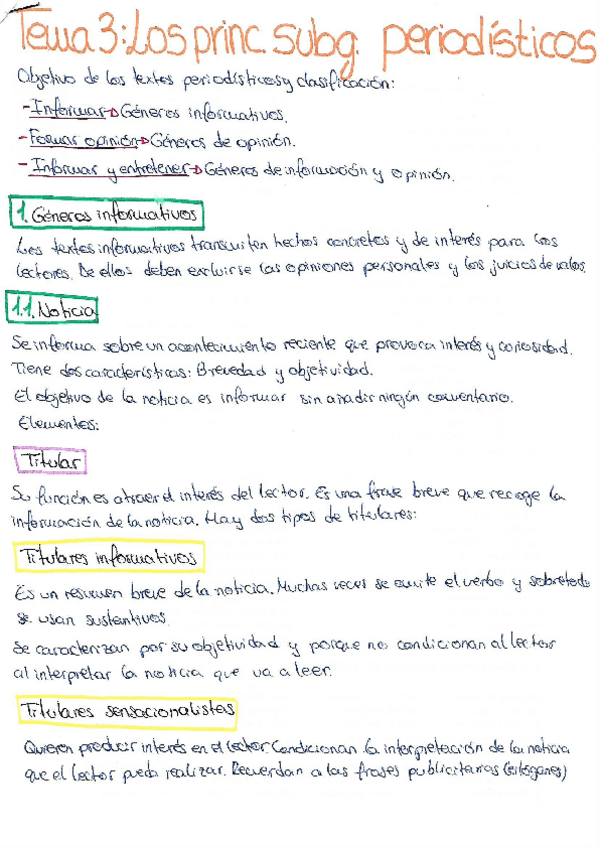 Tema 3: Los princ. subg. periodísticos
Objetivo de los textos periodísticos y clasificación:
- Informar → Géneros informativos.
- Formar opinión → Géneros de opinión.
- Informar y entretener → Géneros de información y opinión.
1. Géneros informativos
Los textos informativos transmiten hechos concretos y de interés para los
lectores. De ellos deben excluirse las opiniones personales y los juicios de valor.
1.1. Noticia
Se informa sobre un acontecimiento reciente que provoca interés y curiosidad.
Tiene dos características: Brevedad y objetividad.
El objetivo de la noticia es informar sin añadir ningún comentario.
Elementos:
Titular
Su función es atraer el interés del lector. Es una frase breve que recoge la
información de la noticia. Hay dos tipos de titulares:
Titulares informativos
Es un resumen breve de la noticia. Muchas veces se omite el verbo y sobretodo
se usan sustantivos.
Se caracterizan por su objetividad y porque no condicionan al lector
al interpretar la noticia que va a leer.
Titulares sensacionalistas
Quieren producir interés en el lector. Condicionan la interpretación de la noticia
que el lector pueda realizar. Recuerdan a las frases publicitarias (eslóganes)